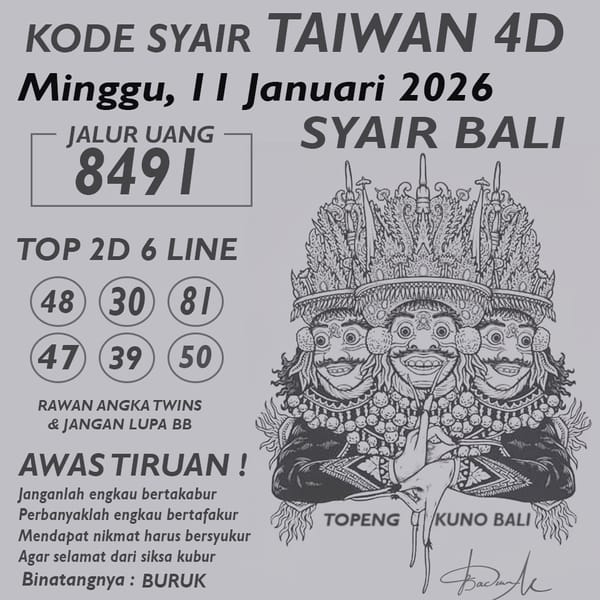 KODE SYAIR TAIWAN 4D
Minggu, 11 Januari 2026
JALUR UANG
8491
SYAIR BALI
TOP 2D 6 LINE
48 30 81
47 39 50
RAWAN ANGKA TWINS
& JANGAN LUPA BB
AWAS TIRUAN !
Janganlah engkau bertakabur
Perbanyaklah engkau bertafakur
Mendapat nikmat harus bersyukur
Agar selamat dari siksa kubur
Binatangnya : BURUK
TOPENG KUNO BALI